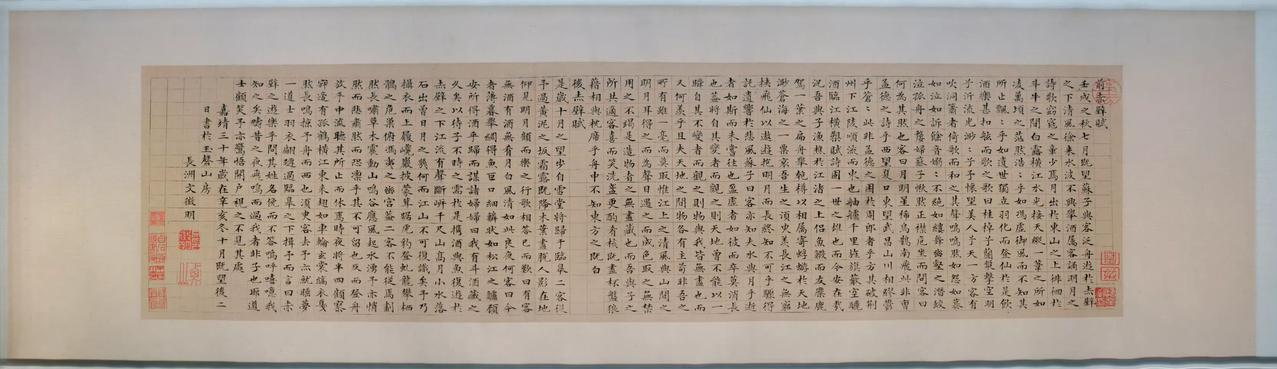 前赤壁賦
壬戌之秋七月既望蘇子與客泛舟遊於赤壁
之下清風徐來水波不興舉酒屬客誦明月之
詩歌窈窕之章少焉月出於東山之上徘徊於
斗牛之間白露橫江水光接天縱一葦之所如
凌萬頃之茫然浩:乎如馮虛御風而不知其
所止飄:乎如遺世獨立羽化而登仙於是飲
酒樂甚扣舷而歌之歌曰桂棹兮蘭槳擊空明
兮泝流光渺:兮予懷望美人兮天一方客有
吹洞簫者倚歌而和之其聲嗚嗚然如怨如慕
如泣如訴餘音嫋:不絕如縷舞幽壑之潛蛟
泣孤舟之嫠婦蘇子愀然正襟危坐而問客曰
何為其然也客曰月明星稀烏鵲南飛此非曹
孟德之詩乎西望夏口東望武昌山川相繆鬱
乎蒼:此非孟德之困於周郎者乎方其破荊
州下江陵順流而東也舳艫千里旌旗蔽空釃
酒臨江橫槊賦詩固一世之雄也而今安在哉
況吾與子漁樵於江渚之上侶魚鰕而友麋鹿
駕一葉之扁舟舉匏樽以相屬寄蜉蝣於天地
渺滄海之一粟哀吾生之須臾羨長江之無窮
挾飛仙以遨遊抱明月而長終知不可乎驟得
託遺響於悲風蘇子曰客亦知夫水與月乎逝
者如斯而未嘗往也盈虛者如彼而卒莫消長
也蓋將自其變者而觀之則天地曾不能以一
瞬自其不變者而觀之則物與我皆無盡也而
又何羨乎且夫天地之間物各有主苟非吾之
所有雖一毫而莫取惟江上之清風與山間之
明月耳得之而為聲目遇之而成色取之無禁
用之不竭是造物者之無盡藏也而吾與子之
所共適客喜而笑洗盞更酌肴核既盡杯盤狼
藉相與枕席乎舟中不知東方之既白
後赤壁賦
是歲十月之望步自雪堂將歸于臨皋二客從
予過黃泥坂霜露既降木葉盡脫人影在地
仰見明月顧而樂之行歌相答已而歎曰有客
無酒有酒無肴月白風清如此良夜何客曰今
者薄暮舉網得魚巨口細鱗狀如松江之鱸顧
安所得酒乎歸而謀諸婦婦曰我有斗酒藏之
久矣以待子不時之需於是攜酒與魚復遊於
赤壁之下江流有聲斷岸千尺山高月小水落
石出曾日月之幾何而江山不可復識矣予乃
攝衣而上履巉巖披蒙茸踞虎豹登虬龍攀栖
鶻之危巢俯馮夷之幽宮蓋二客不能從焉劃
然長嘯草木震動山鳴谷應風起水湧予亦悄
然而悲肅然而恐凜乎其不可留也反而登舟
放乎中流聽其所止而休焉時夜將半四顧寂
寥適有孤鶴橫江東來翅如車輪玄裳縞衣戛
然長鳴掠予舟而西也須臾客去予亦就睡夢
一道士羽衣翩躚過臨皋之下揖予而言曰赤
壁之遊樂乎問其姓名俛而不答嗚呼噫嘻我
知之矣疇昔之夜飛鳴而過我者非子也耶道
士顧笑予亦驚悟開戶視之不見其處
嘉靖三十年歲在辛亥冬十月既望後二
日書於玉磬山房
長洲文徵明